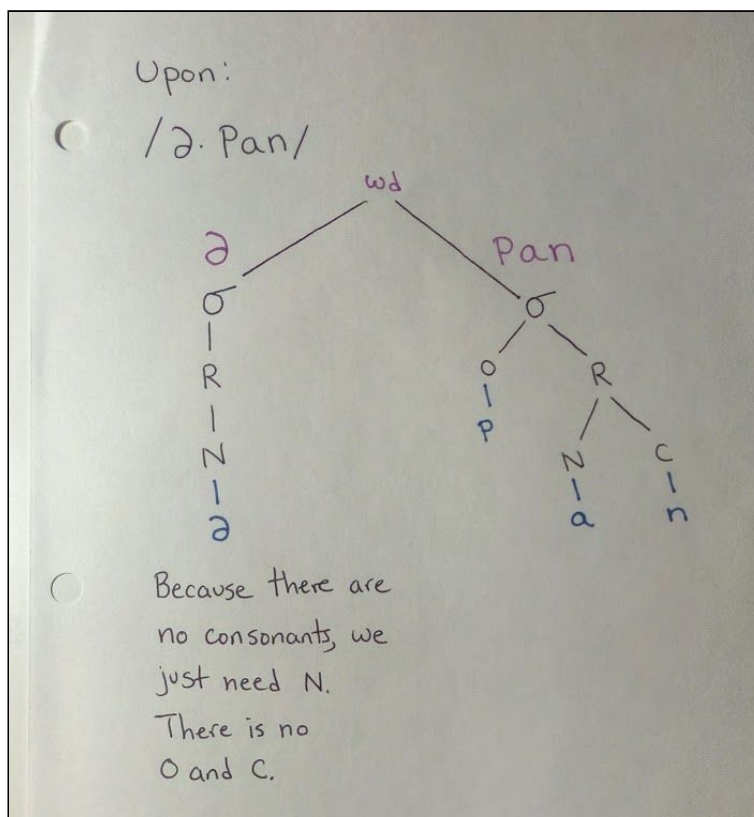 Upon:
/ə. Pan/
wd
ə Pan
σ σ
R O R
N P N C
ə a n
Because there are
no consonants, we
just need N.
There is no
O and C.